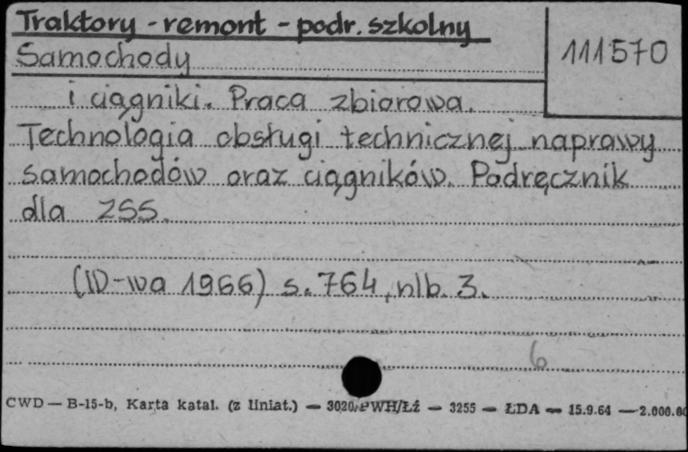 Traktory - remont - podr. szkolny
Samochody
111570
i ciągniki. Praca zbiorowa.
Technologia obsługi technicznej naprawy
samochodów oraz ciągników. Podręcznik
dla ZSS.
(W-wa 1966) s. 764, nlb. 3.
6
CWD — B-15-b, Karta katal. (z liniat.) — 3020/PWH/Łź — 3255 — ŁDA — 15.9.64 — 2.000.00